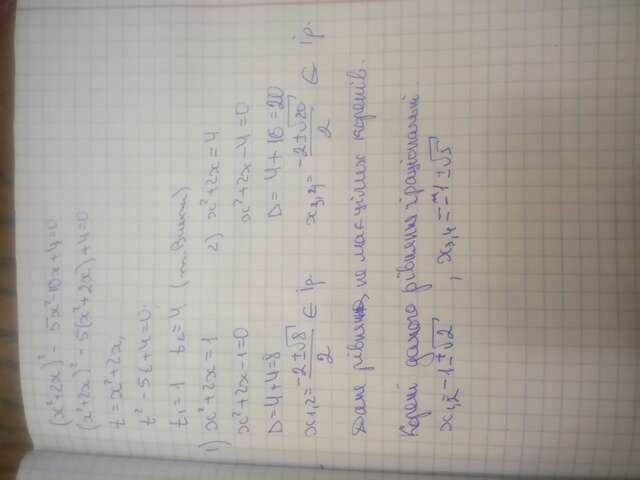 (x²+2x)² - 5x²-10x+4=0
(x²+2x)² - 5(x²+2x)+4=0
t=x²+2x,
t² - 5t+4=0.
t₁=1 t₂=4 (т. Вієта)
1) x²+2x=1 2) x²+2x=4
x²+2x-1=0 x²+2x-4=0
D=4+4=8 D=4+16=20
x₁,₂=(-2±√8)/2 ∈ Ір. x₃,₄=(-2±√20)/2 ∈ Ір.
Дане рівняння не має цілих коренів.
Корені даного рівняння ірраціональні
x₁,₂=-1±√2, x₃,₄=-1±√5